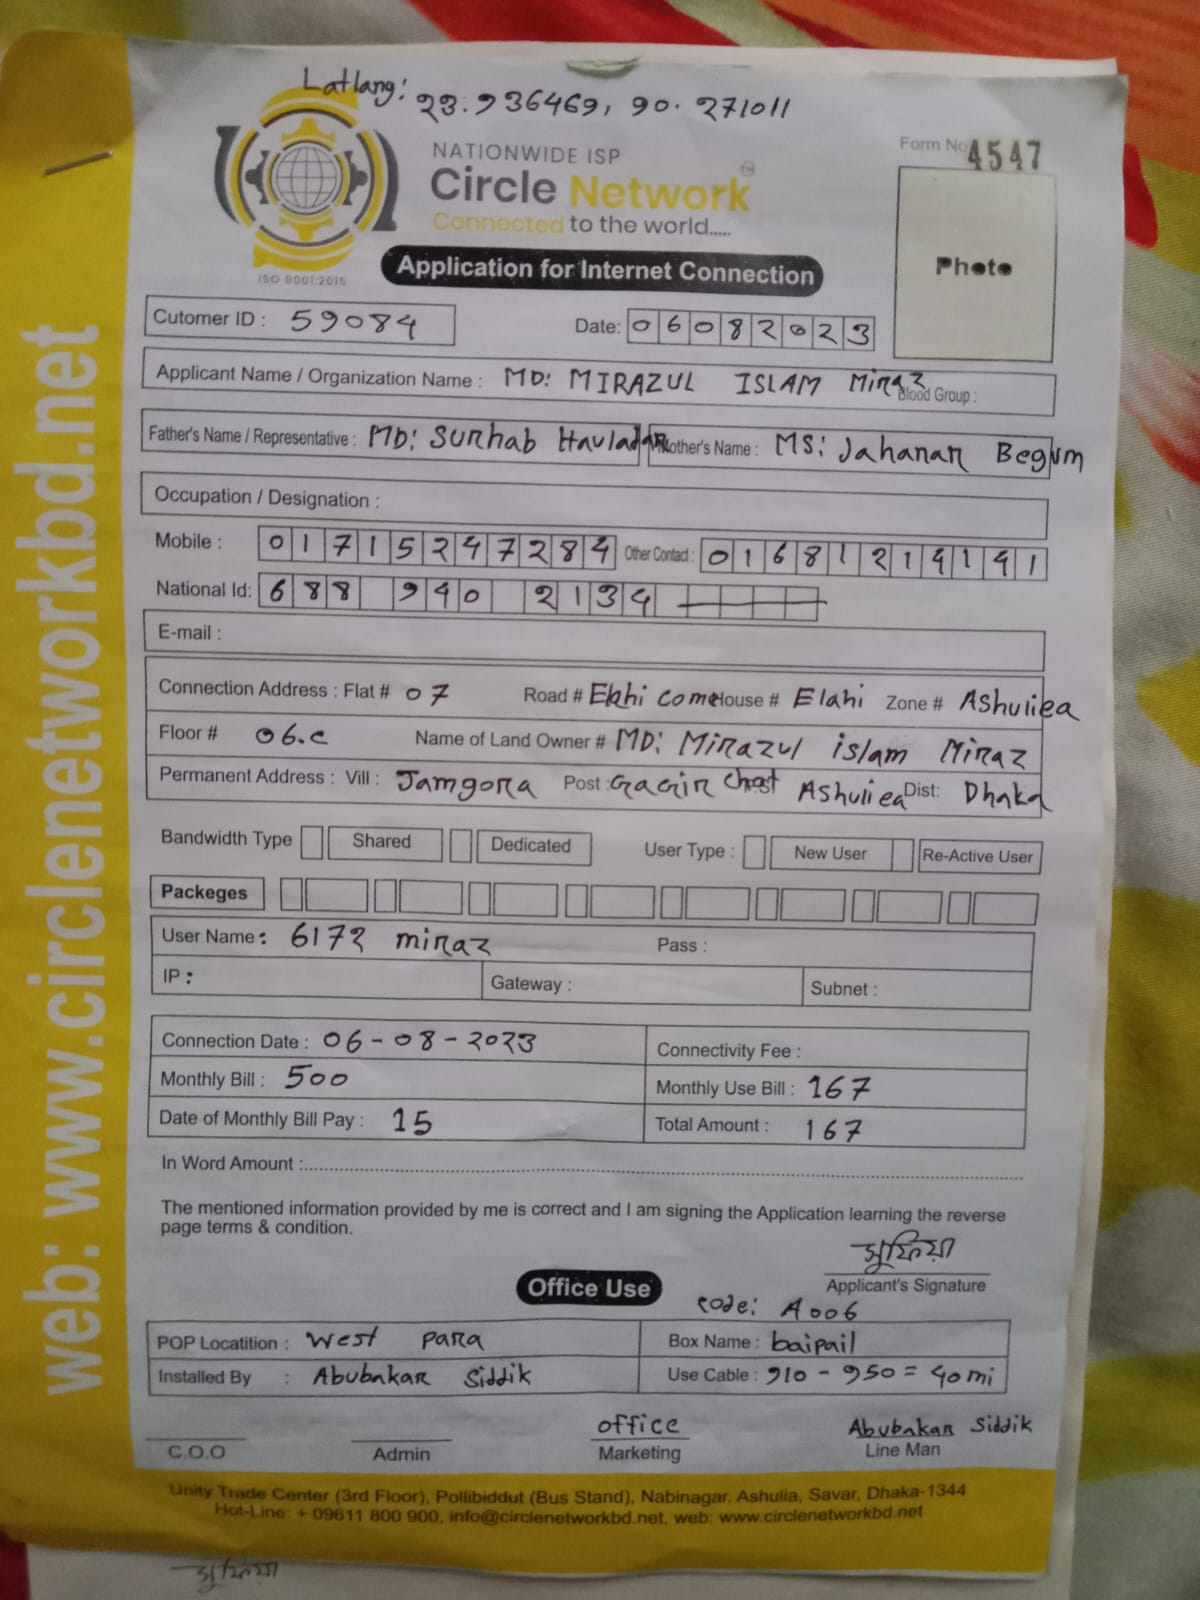 Latlang: 23.936469, 90.271011
NATIONWIDE ISP
Circle Network TM
Connected to the world.....
ISO 9001:2015
Form No 4547
Photo
Application for Internet Connection
Cutomer ID : 59084 Date: 06082023
Applicant Name / Organization Name : MD: MIRAZUL ISLAM Miraz Blood Group :
Father's Name / Representative : MD: Surhab Hauladar Mother's Name : MS: Jahanar Begum
Occupation / Designation :
Mobile : 01715247284 Other Contact : 01681214141
National Id: 688 940 2134
E-mail :
Connection Address : Flat # 07 Road # House # Elahi Zone # Ashuliea
Floor # 06.c Name of Land Owner # MD: Mirazul islam Miraz
Permanent Address : Vill : Jamgora Post : Ashuliea Dist: Dhaka
Bandwidth Type Shared Dedicated User Type : New User Re-Active User
Packeges
User Name : 6172 miraz Pass :
IP : Gateway : Subnet :
Connection Date : 06-08-2023 Connectivity Fee :
Monthly Bill : 500 Monthly Use Bill : 167
Date of Monthly Bill Pay : 15 Total Amount : 167
In Word Amount :
The mentioned information provided by me is correct and I am signing the Application learning the reverse
page terms & condition.
সুফিয়া
Applicant's Signature
Office Use
code: A006
POP Locatition : West para Box Name : baipail
Installed By : Abubakar Siddik Use Cable : 910 - 950 = 40mi
office Abubakar Siddik
C.O.O Admin Marketing Line Man
Unity Trade Center (3rd Floor), Pollibiddut (Bus Stand), Nabinagar, Ashulia, Savar, Dhaka-1344
Hot-Line: + 09611 800 900, info@circlenetworkbd.net, web: www.circlenetworkbd.net
web: www.circlenetworkbd.net
সুফিয়া